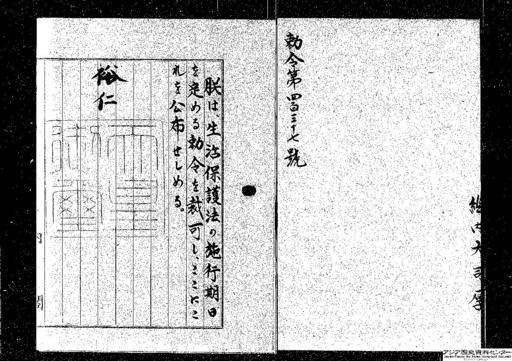 勅令第四百三十七號
朕は、生活保護法の施行期日
を定める勅令を裁可し、ここにこ
れを公布せしめる。
裕仁
内閣
アジア歴史資料センター